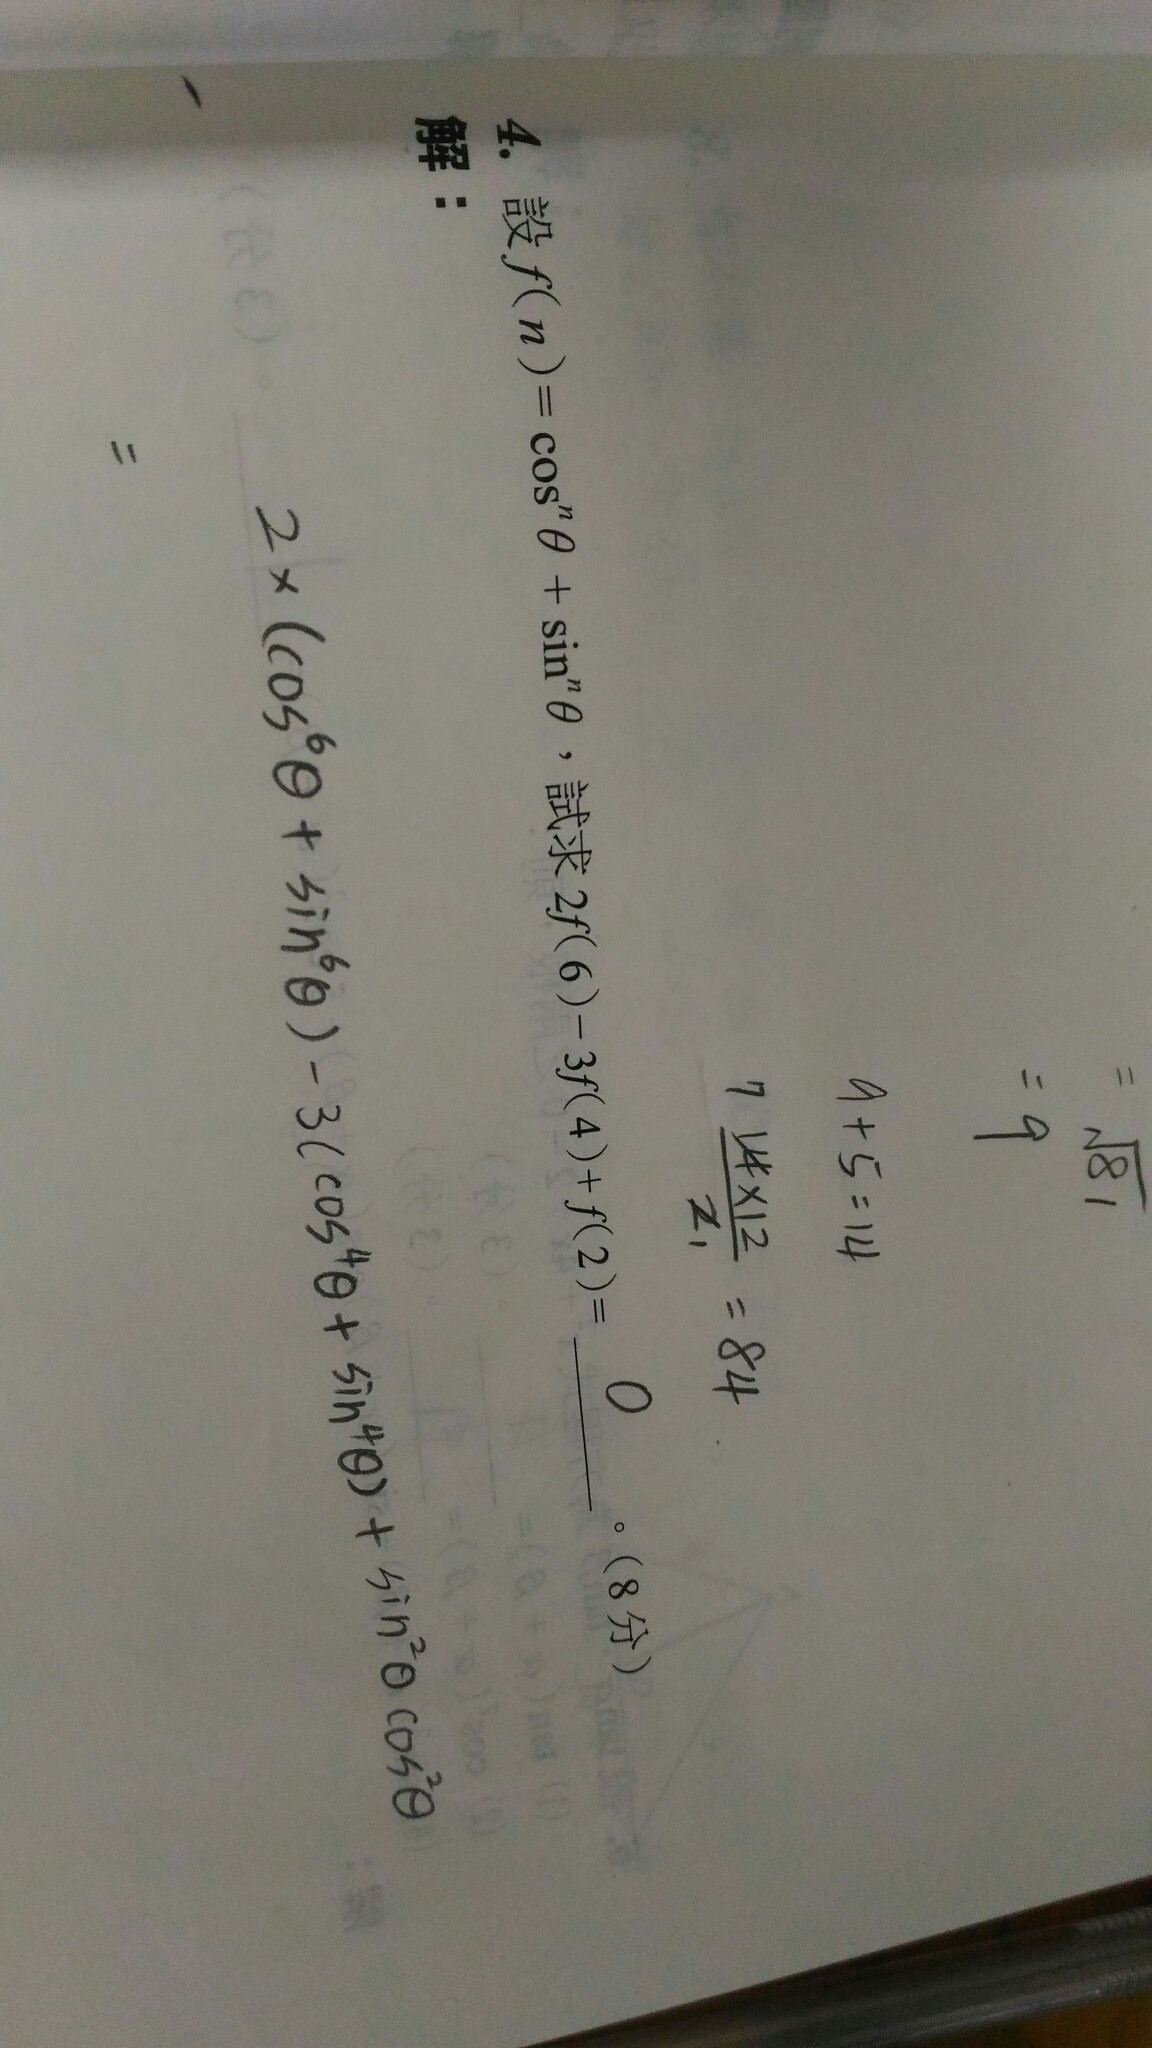 = √81
= 9
9+5=14
7 14×12 / 2 1 = 84
4. 設 f(n)=cosⁿθ+sinⁿθ，試求 2f(6)-3f(4)+f(2)= 0 。(8分)
解：
2×(cos⁶θ+sin⁶θ)-3(cos⁴θ+sin⁴θ)+sin²θcos²θ
=